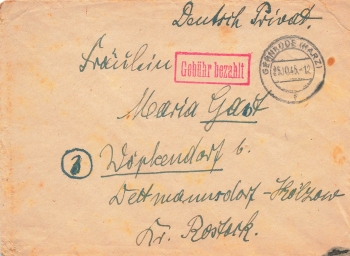 Deutsch Privat.
Fräulein
Gebühr bezahlt
GERNRODE (HARZ)
25.10.45.-12
Maria Gast
Wöpkendorf b.
Dettmannsdorf-Kölzow
Kr. Rostock.